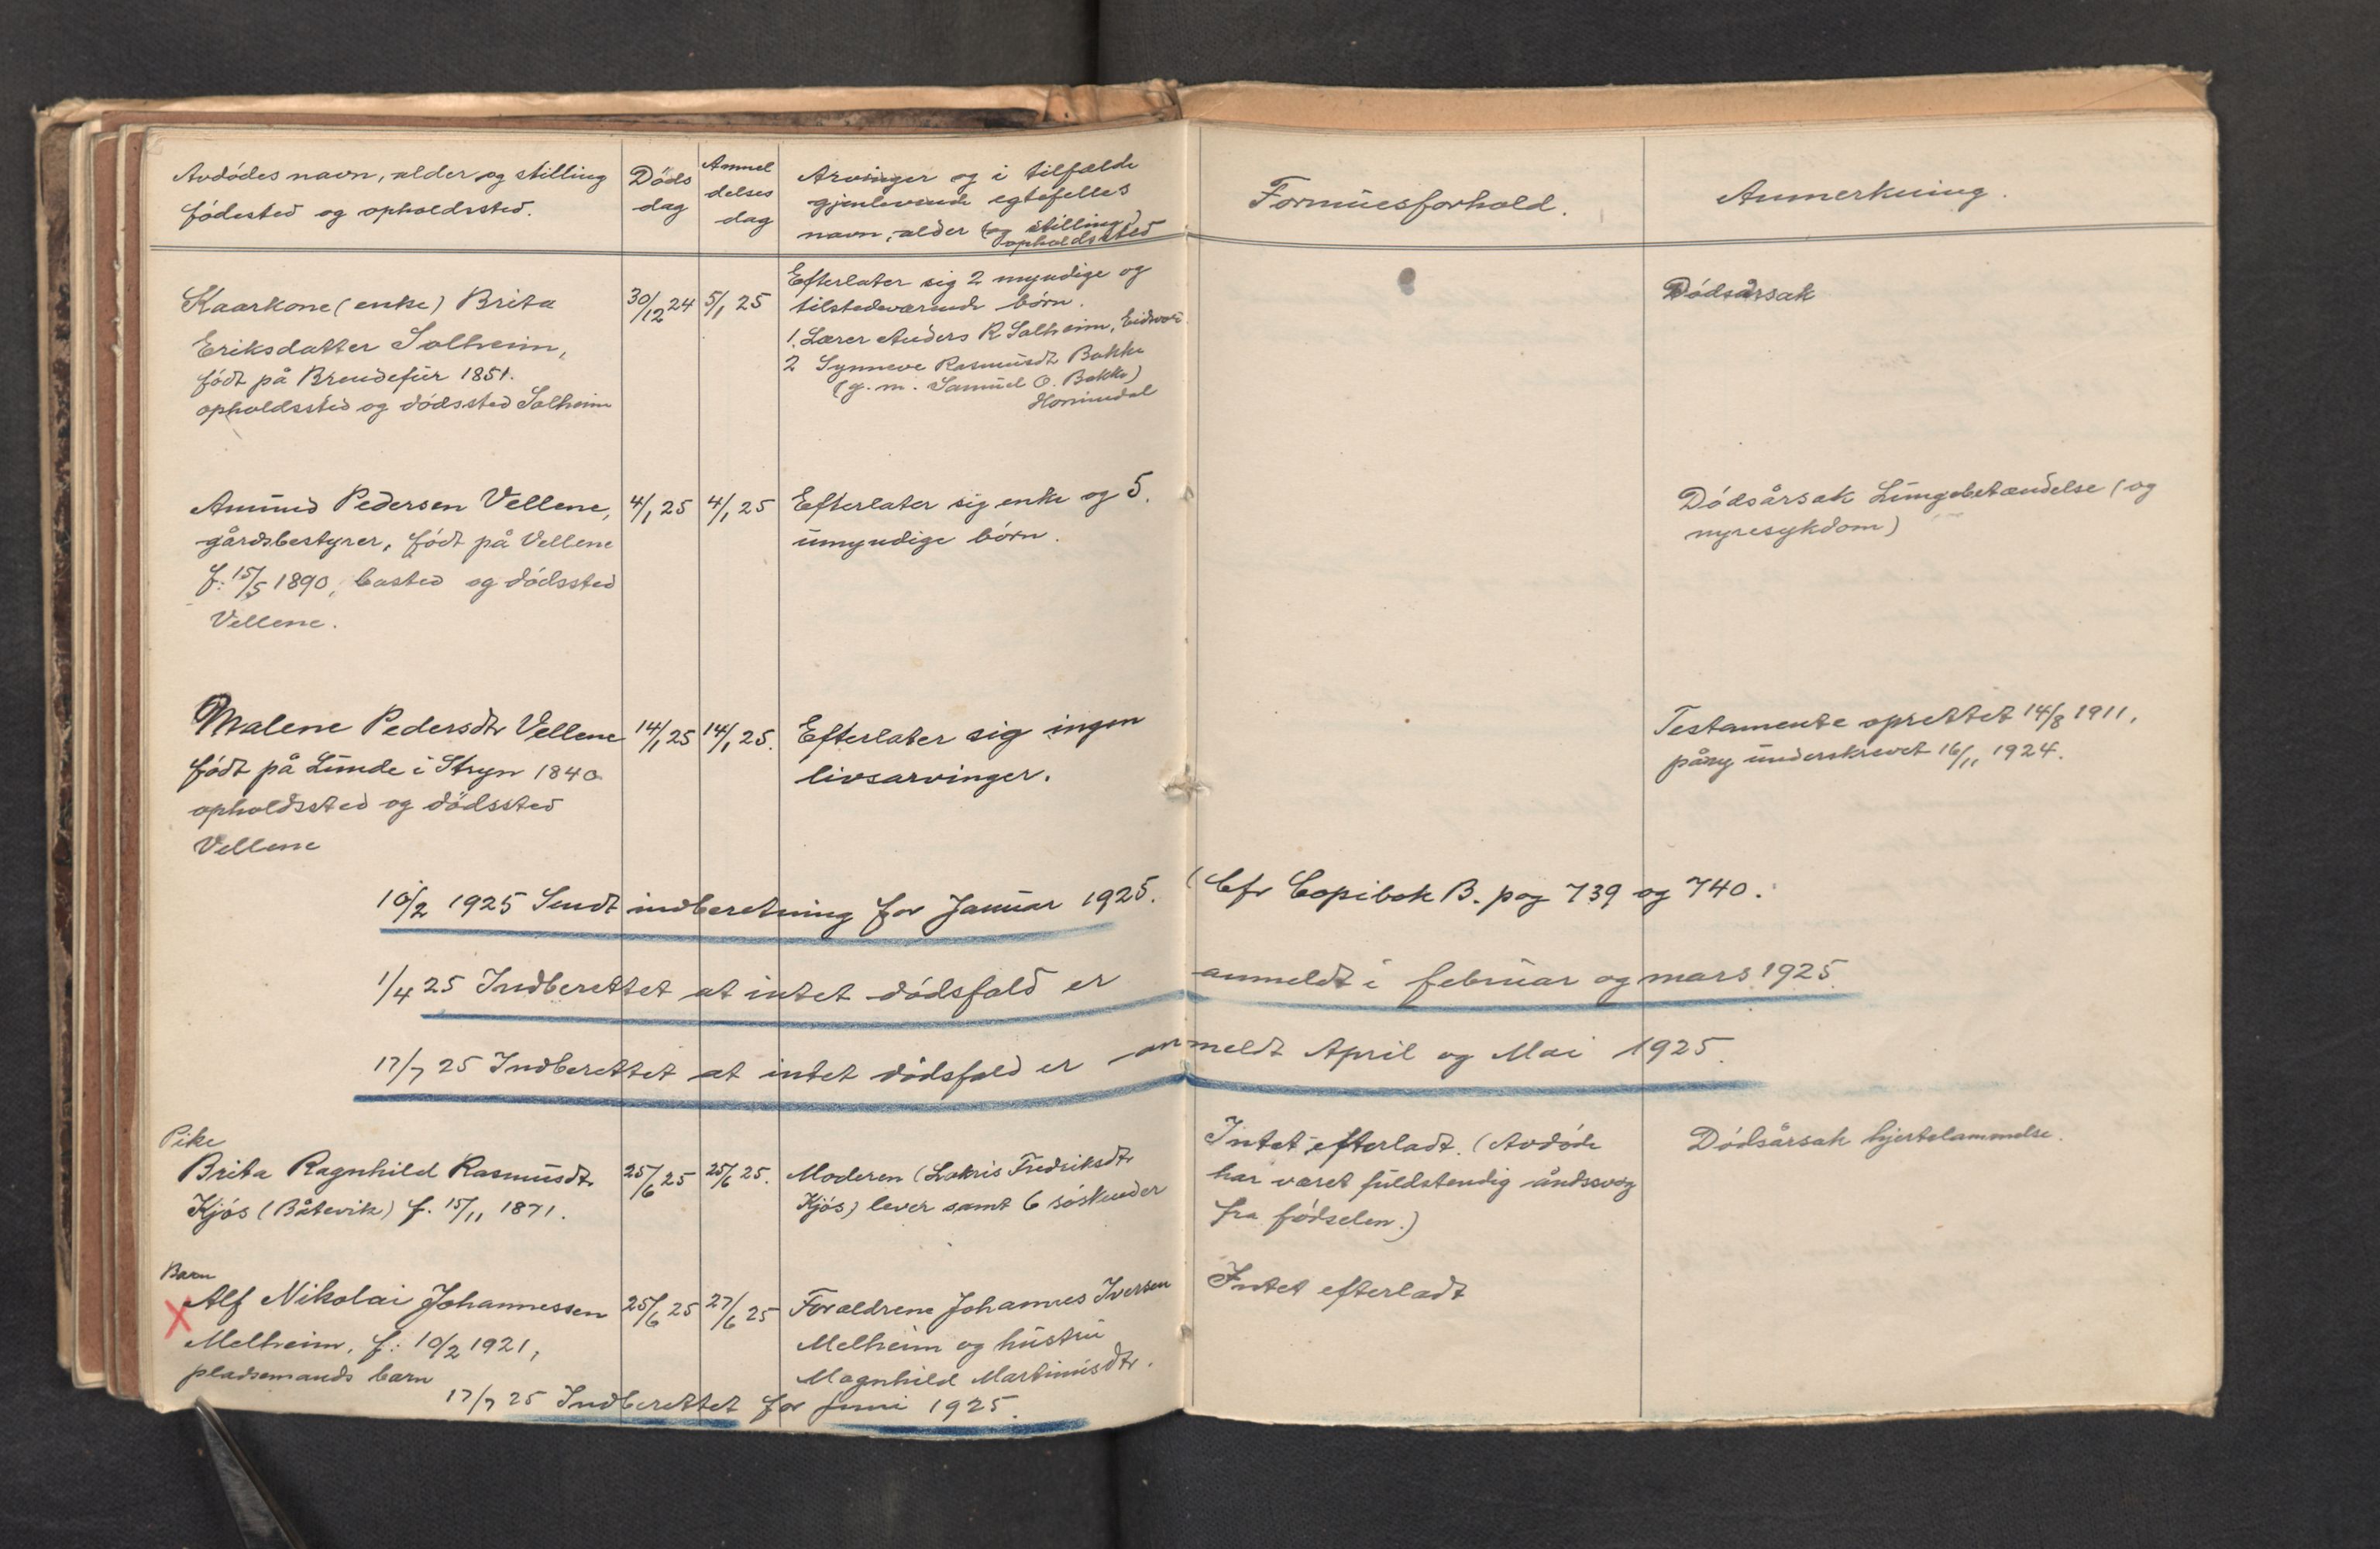 Avdødes navn, alder og stilling
fødested og opholdssted.
Døds
dag
Anmel
delses
dag
Arvinger og i tilfælde
gjenlevende egtefelles
navn, alder (og stilling)
opholdssted
Formuesforhold.
Anmerkning.
Kaarkone (enke) Brita
Eriksdatter Solheim,
født på Brendefur 1851.
opholdssted og dødssted Solheim
30/12 24
5/1 25
Efterlater sig 2 myndige og
tilstedeværende børn.
1. Lærer Anders R Solheim,
2 Synneve Rasmusdt Bakke
(g. m. Samuel O. Bakke)
Hornindal
Dødsårsak
Amund Pedersen Vellene,
gårdsbestyrer, født på Vellene
f: 15/5 1890, bosted og dødssted
Vellene.
4/1 25
4/1 25
Efterlater sig enke og 5.
umyndige børn.
Dødsårsak Lungebetændelse (og
nyresykdom)
Malene Pedersdtr Vellene
født på Lunde i Stryn 1840
opholdssted og dødssted
Vellene
14/1 25
14/1 25.
Efterlater sig ingen
livsarvinger.
Testamente oprettet 14/8 1911,
påny underskrevet 16/11 1924.
10/2 1925 Sendt indberetning for Januar 1925. (Cfr Copibok B. pag 739 og 740.
1/4 25 Indberettet at intet dødsfald er anmeldt i februar og mars 1925.
17/7 25 Indberettet at intet dødsfald er anmeldt April og Mai 1925.
Pike
Brita Ragnhild Rasmusdtr
Kjøs (Båtevik) f. 15/11 1871.
25/6 25
25/6 25.
Moderen (Lakris Fredriksdtr
Kjøs) lever samt 6 søskender
Intet efterladt. (Avdøde
har været fuldstendig åndssvag
fra fødselen.)
Dødsårsak hjertelammelse.
Barn
X Alf Nikolai Johannessen
Melheim, f: 10/2 1921,
pladsemands barn
25/6 25
27/6 25
Forældrene Johannes Iversen
Melheim og hustru
Magnhild Martinusdtr.
Intet efterladt
17/7 25 Indberettet for juni 1925.